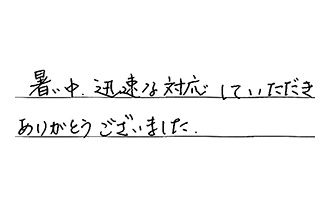 暑い中、迅速な対応していただき
ありがとうございました.